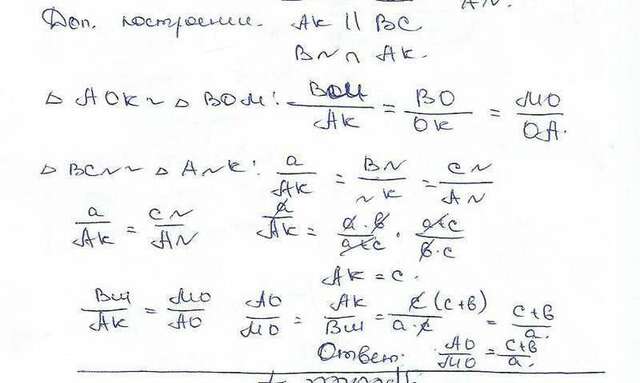 AN.
Доп. построение. AK || BC
BN ∩ AK.
△ AOK ~ △ BOM: BM/AK = BO/OK = MO/OA.
△ BCN ~ △ ANK: a/AK = BN/NK = CN/AN
a/AK = CN/AN a/AK = a·b/(a+c) · (a+c)/(b·c)
AK = c.
BM/AK = MO/AO AO/MO = AK/BM = c(c+b)/(a·c) = (c+b)/a.
Ответ. AO/MO = (c+b)/a.